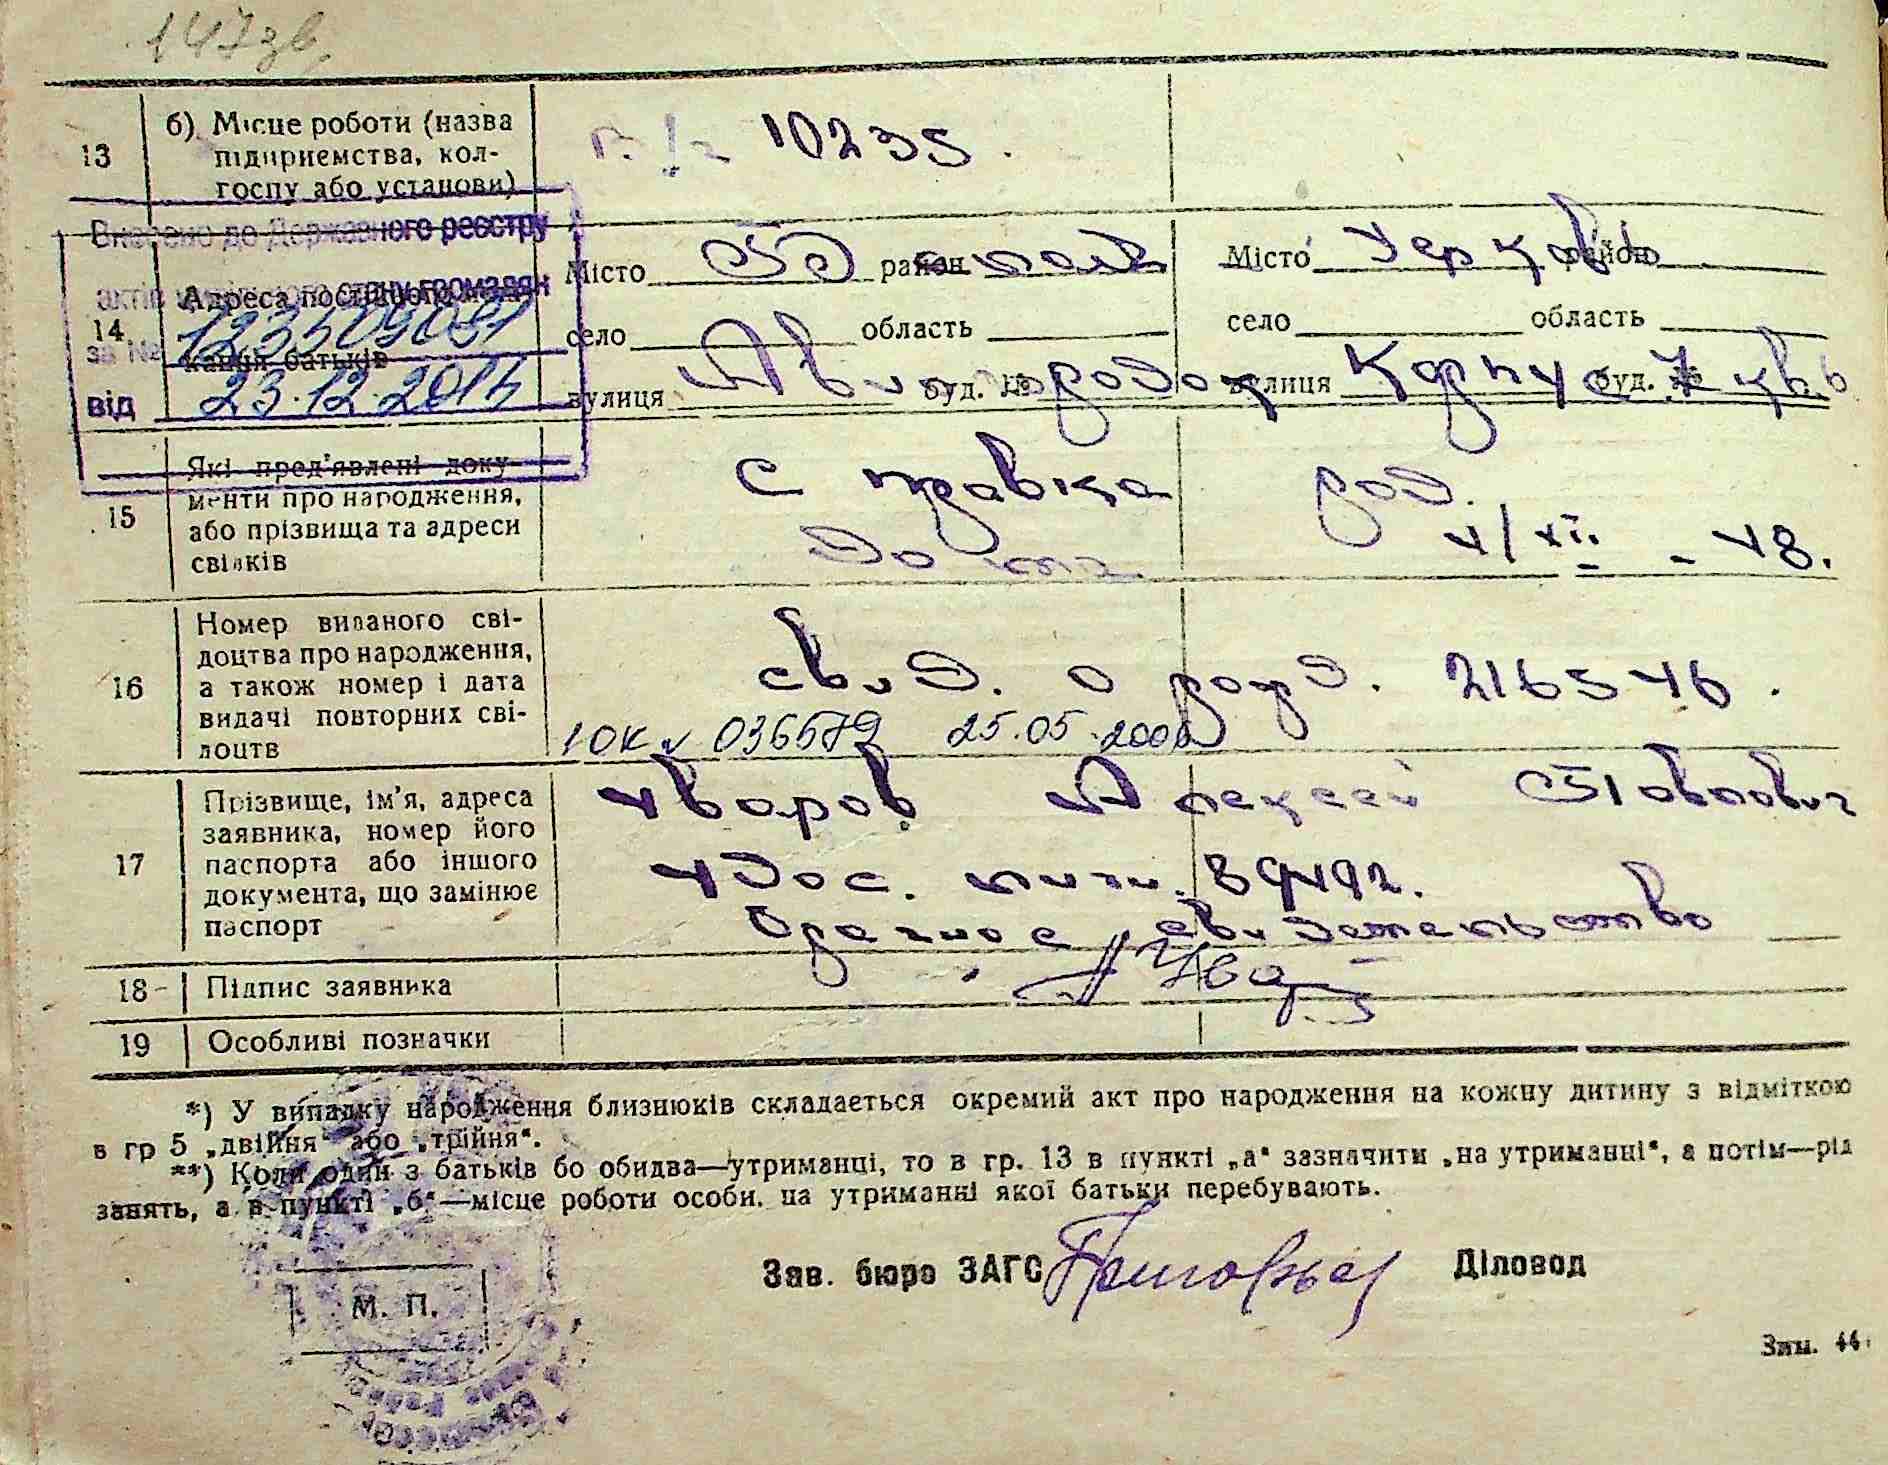 147зв
13
б) Місце роботи (назва
підприємства, кол-
госпу або установи)
10235.
Внесено до Державного реєстру
актів цивільного стану громадян
за №
від 23.12.
14
Адреса постійного
кання батьків
Місто район
село область
вулиця буд. №
Місто район
село область
вулиця Корпус буд. № 7 кв. 6
15
Які пред'явлені доку-
менти про народження,
або прізвища та адреси
свідків
справка род.
16
Номер виданого сві-
доцтва про народження,
а також номер і дата
видачі повторних сві-
доцтв
свид. о рожд.
036579 25.05.
17
Прізвище, ім'я, адреса
заявника, номер його
паспорта або іншого
документа, що замінює
паспорт
Уваров Алексей Павлович
Удос. личн.
Брачное свидетельство
18
Підпис заявника
19
Особливі позначки
*) У випадку народження близнюків складається окремий акт про народження на кожну дитину з відміткою
в гр 5 „двійня“ або „трійня“.
**) Коли один з батьків бо обидва—утриманці, то в гр. 13 в пункті „а“ зазначити „на утриманні“, а потім—рід
занять, а в пункті „б“—місце роботи особи, на утриманні якої батьки перебувають.
Зав. бюро ЗАГС Діловод
М. П.
Зам. 44